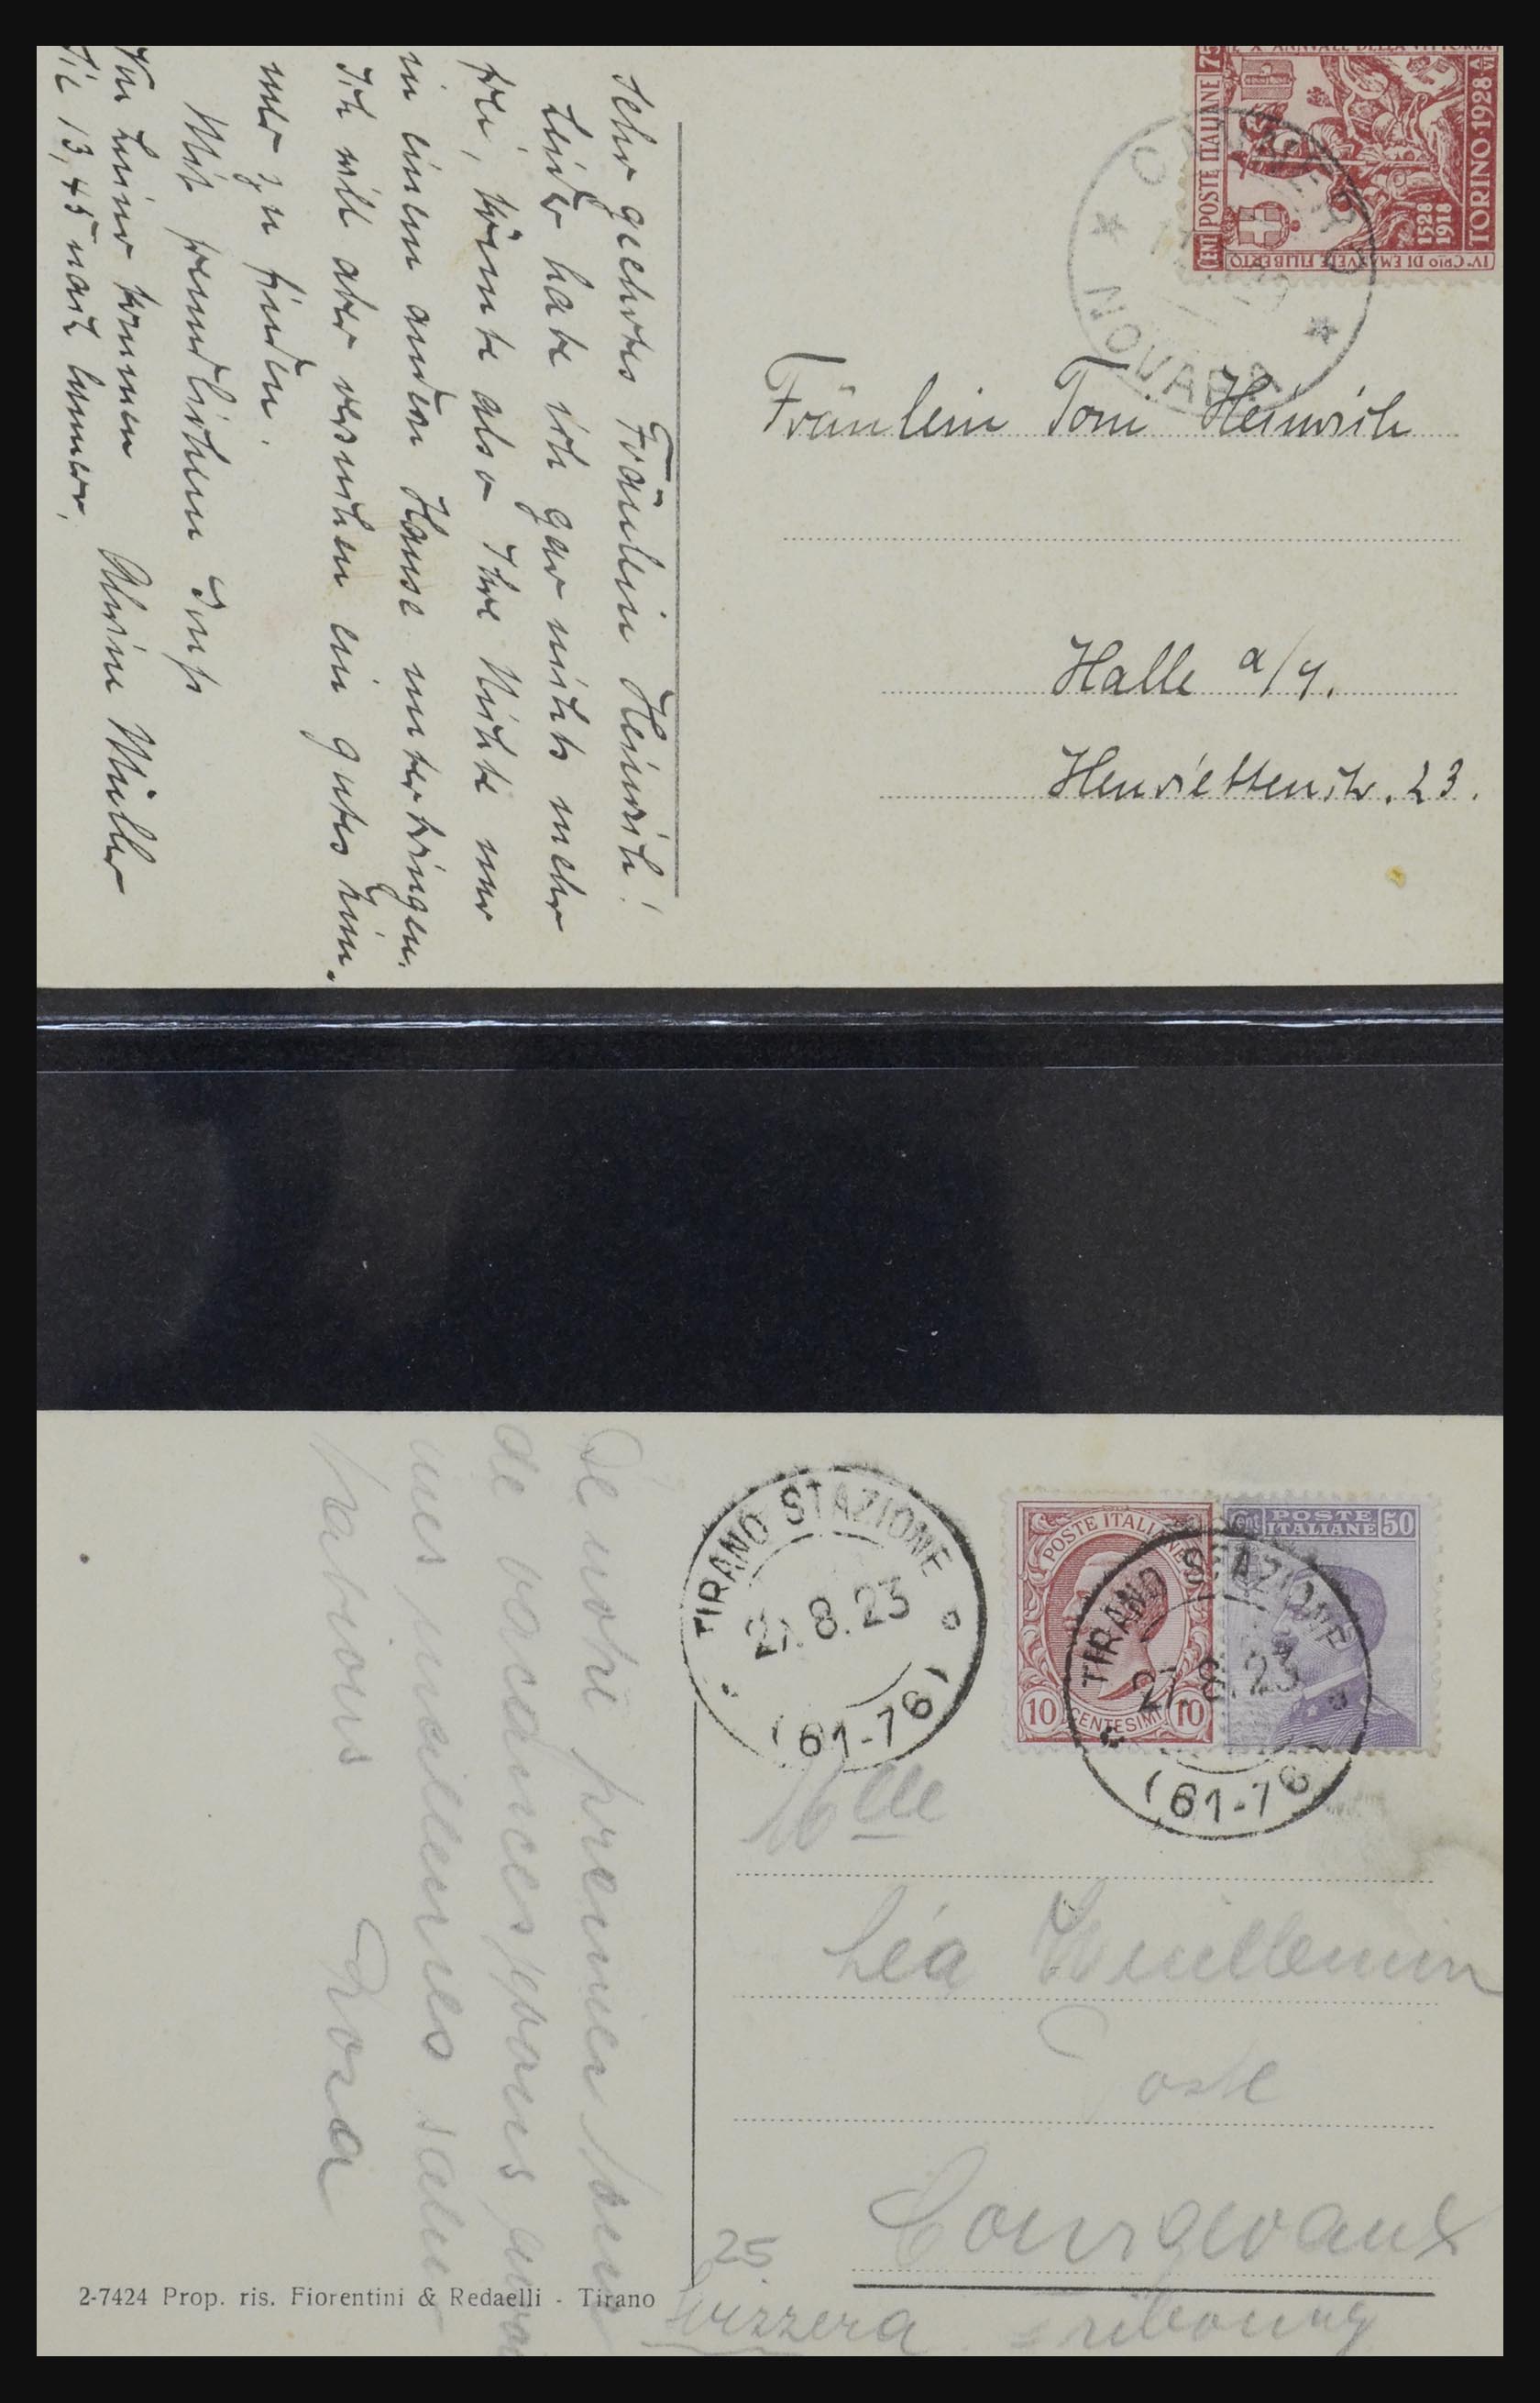 Sehr geehrtes Fräulein Heinrich!
Leider habe ich gar nichts mehr
frei, könnte also Ihre Nichte nur
in einem andern Hause unterbringen.
Ich will aber versuchen ein gutes Zim.
mer zu finden.
Mit freundlichem Gruß
Alwine Müller
13,45 nach
CENT 75 POSTE ITALIANE
Xº ANNUALE DELLA VITTORIA
1528
1918
TORINO · 1928 · A. VI
IVº CRIO DI EMANUELE FILIBERTO
NOVARA
Fräulein Toni Heinrich
Halle a/S.
Henriettenstr. 23.
De notre premier jour
de vacances
mes meilleures
Rosa
TIRANO STAZIONE
27.8.23
(61-76)
POSTE ITALIANE
10 CENTESIMI 10
Cent POSTE ITALIANE 50
TIRANO STAZIONE
27.8.23
(61-76)
Mlle
Léa Vuillemin
Poste
Courgevaux
25.
Svizzera Fribourg
2-7424 Prop. ris. Fiorentini & Redaelli - Tirano